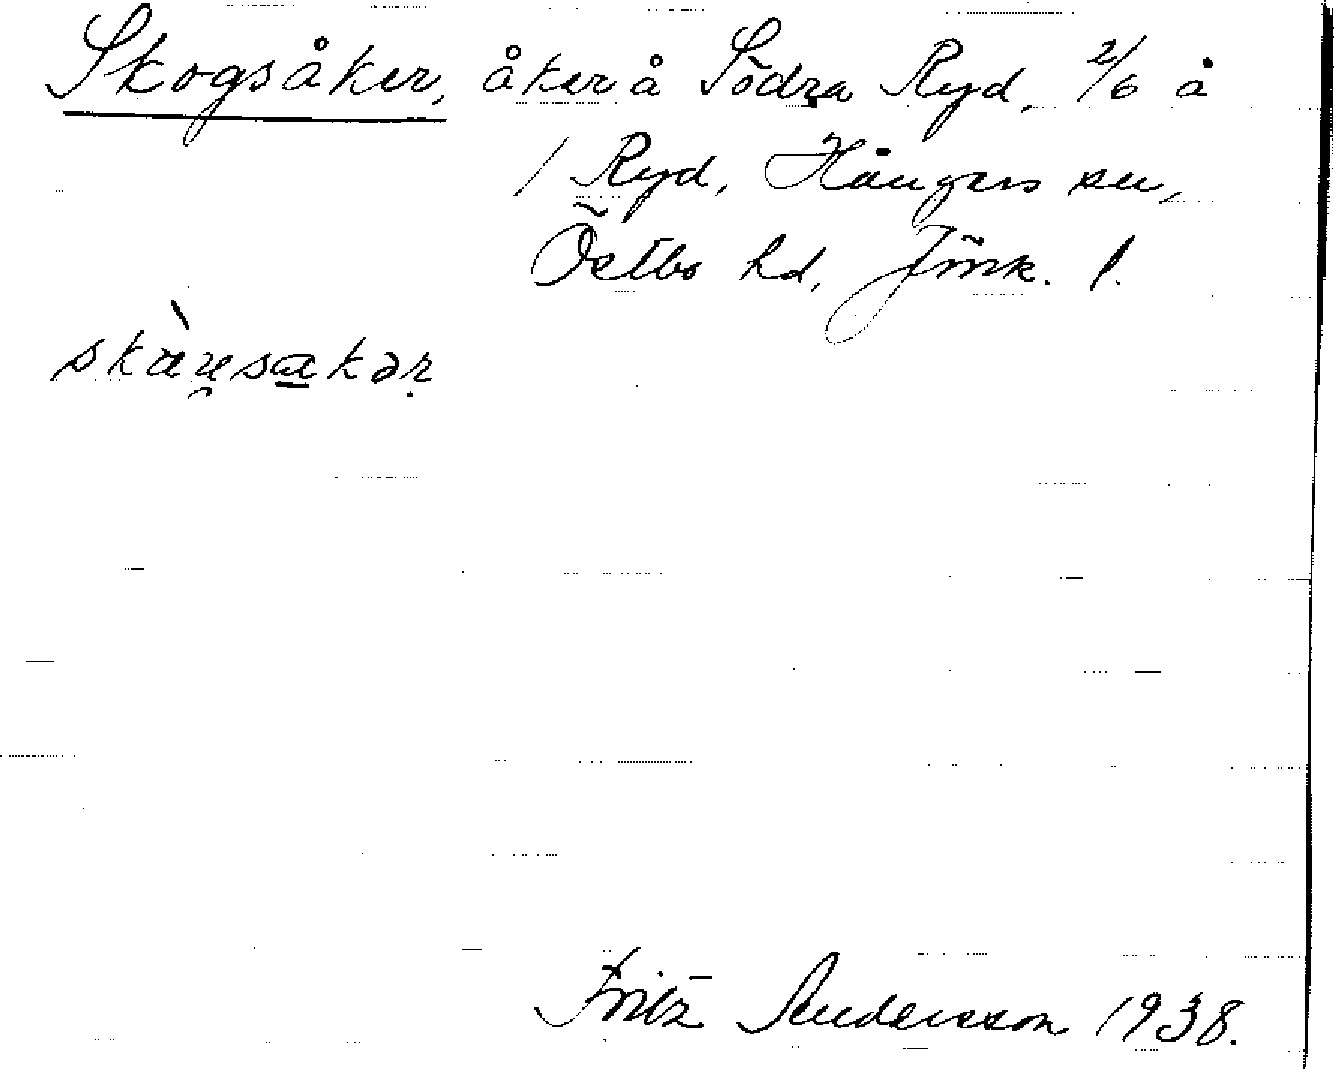 Skogsåker, åker å Södra Ryd, 2/6 å
1 Ryd, Hångers sn,
Östbo hd, Jönk. l.
Fritz Andersson 1938.